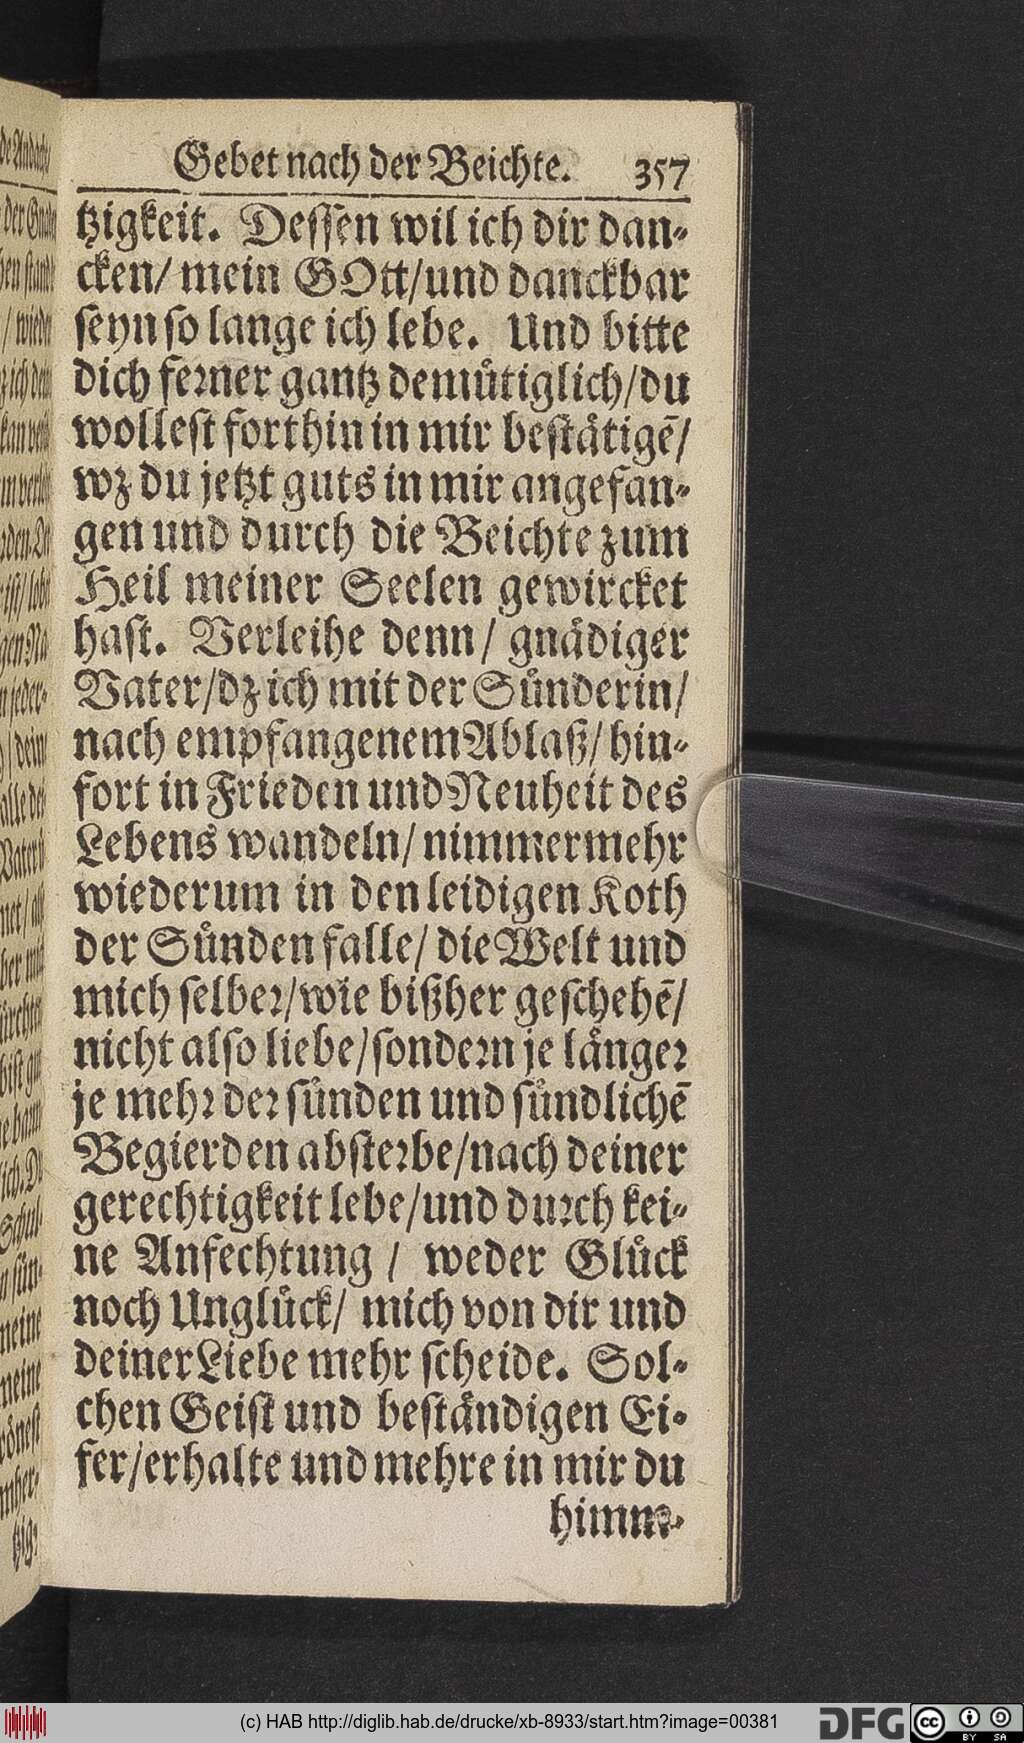 Gebet nach der Beichte. 357
tzigkeit. Dessen wil ich dir dan-
cken/ mein GOtt/und danckbar
seyn so lange ich lebe. Und bitte
dich ferner gantz demütiglich/du
wollest forthin in mir bestätigē/
wz du jetzt guts in mir angefan-
gen und durch die Beichte zum
Heil meiner Seelen gewircket
hast. Verleihe denn/ gnädiger
Vater/dz ich mit der Sünderin/
nach empfangenem Ablaß/ hin-
fort in Frieden und Neuheit des
Lebens wandeln/ nimmermehr
wiederum in den leidigen Koth
der Sünden falle/ die Welt und
mich selber/wie bißher geschehē/
nicht also liebe/sondern je länger
je mehr der sünden und sündlichē
Begierden absterbe/nach deiner
gerechtigkeit lebe/und durch kei-
ne Anfechtung / weder Glück
noch Unglück/ mich von dir und
deiner Liebe mehr scheide. Sol-
chen Geist und beständigen Ei-
fer/erhalte und mehre in mir du
himm-
(c) HAB http://diglib.hab.de/drucke/xb-8933/start.htm?image=00381
DFG
cc BY SA